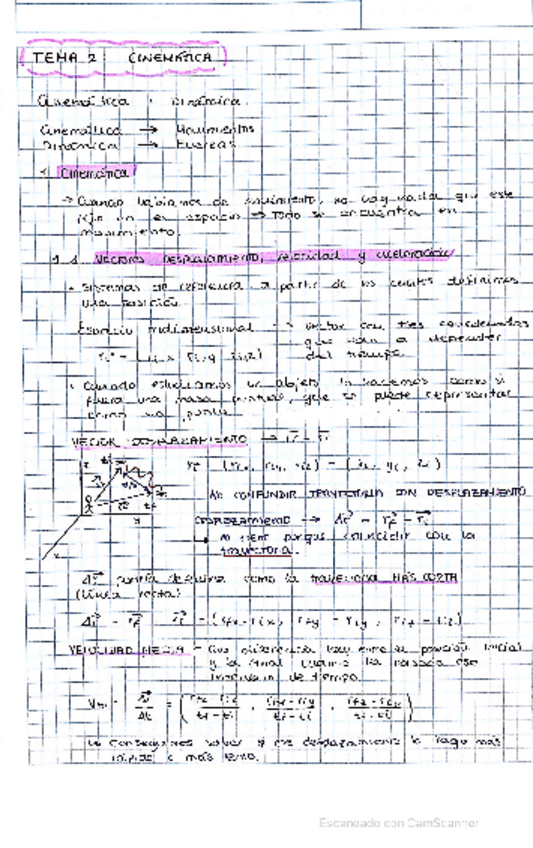 TEMA 2: CINEMÁTICA
Cinemática y Dinámica.
Cinemática → Movimientos
Dinámica → Fuerzas
1. Cinemática
→ Cuando hablamos de movimiento, no hay nada que esté
fijo en el espacio → Todo se encuentra en
movimiento.
1.1. Vectores desplazamiento, velocidad y aceleración
Sistemas de referencia a partir de los cuales definimos
una posición.
Espacio tridimensional → Vector con tres coordenadas
que van a depender
del tiempo.
Cuando estudiamos un objeto lo hacemos como si
fuera una masa puntual, que se puede representar
como un punto.
VECTOR DESPLAZAMIENTO →
NO CONFUNDIR TRAYECTORIA CON DESPLAZAMIENTO
DESPLAZAMIENTO → Δr = rf - ri
no tiene porque coincidir con la
trayectoria.
Δr podría definirse como la trayectoria MÁS CORTA
(línea recta)
Δr = rf - ri = (rfx - rix, rfy - riy, rfz - riz)
VELOCIDAD MEDIA → Qué diferencia hay entre la posición inicial
y la final cuando ha pasado ese
intervalo de tiempo.
Vm = Δr/Δt = (rfx - rix / tf - ti , rfy - riy / tf - ti , rfz - riz / tf - ti)
Conseguimos saber si ese desplazamiento lo hago más
rápido o más lento.
Escaneado con CamScanner